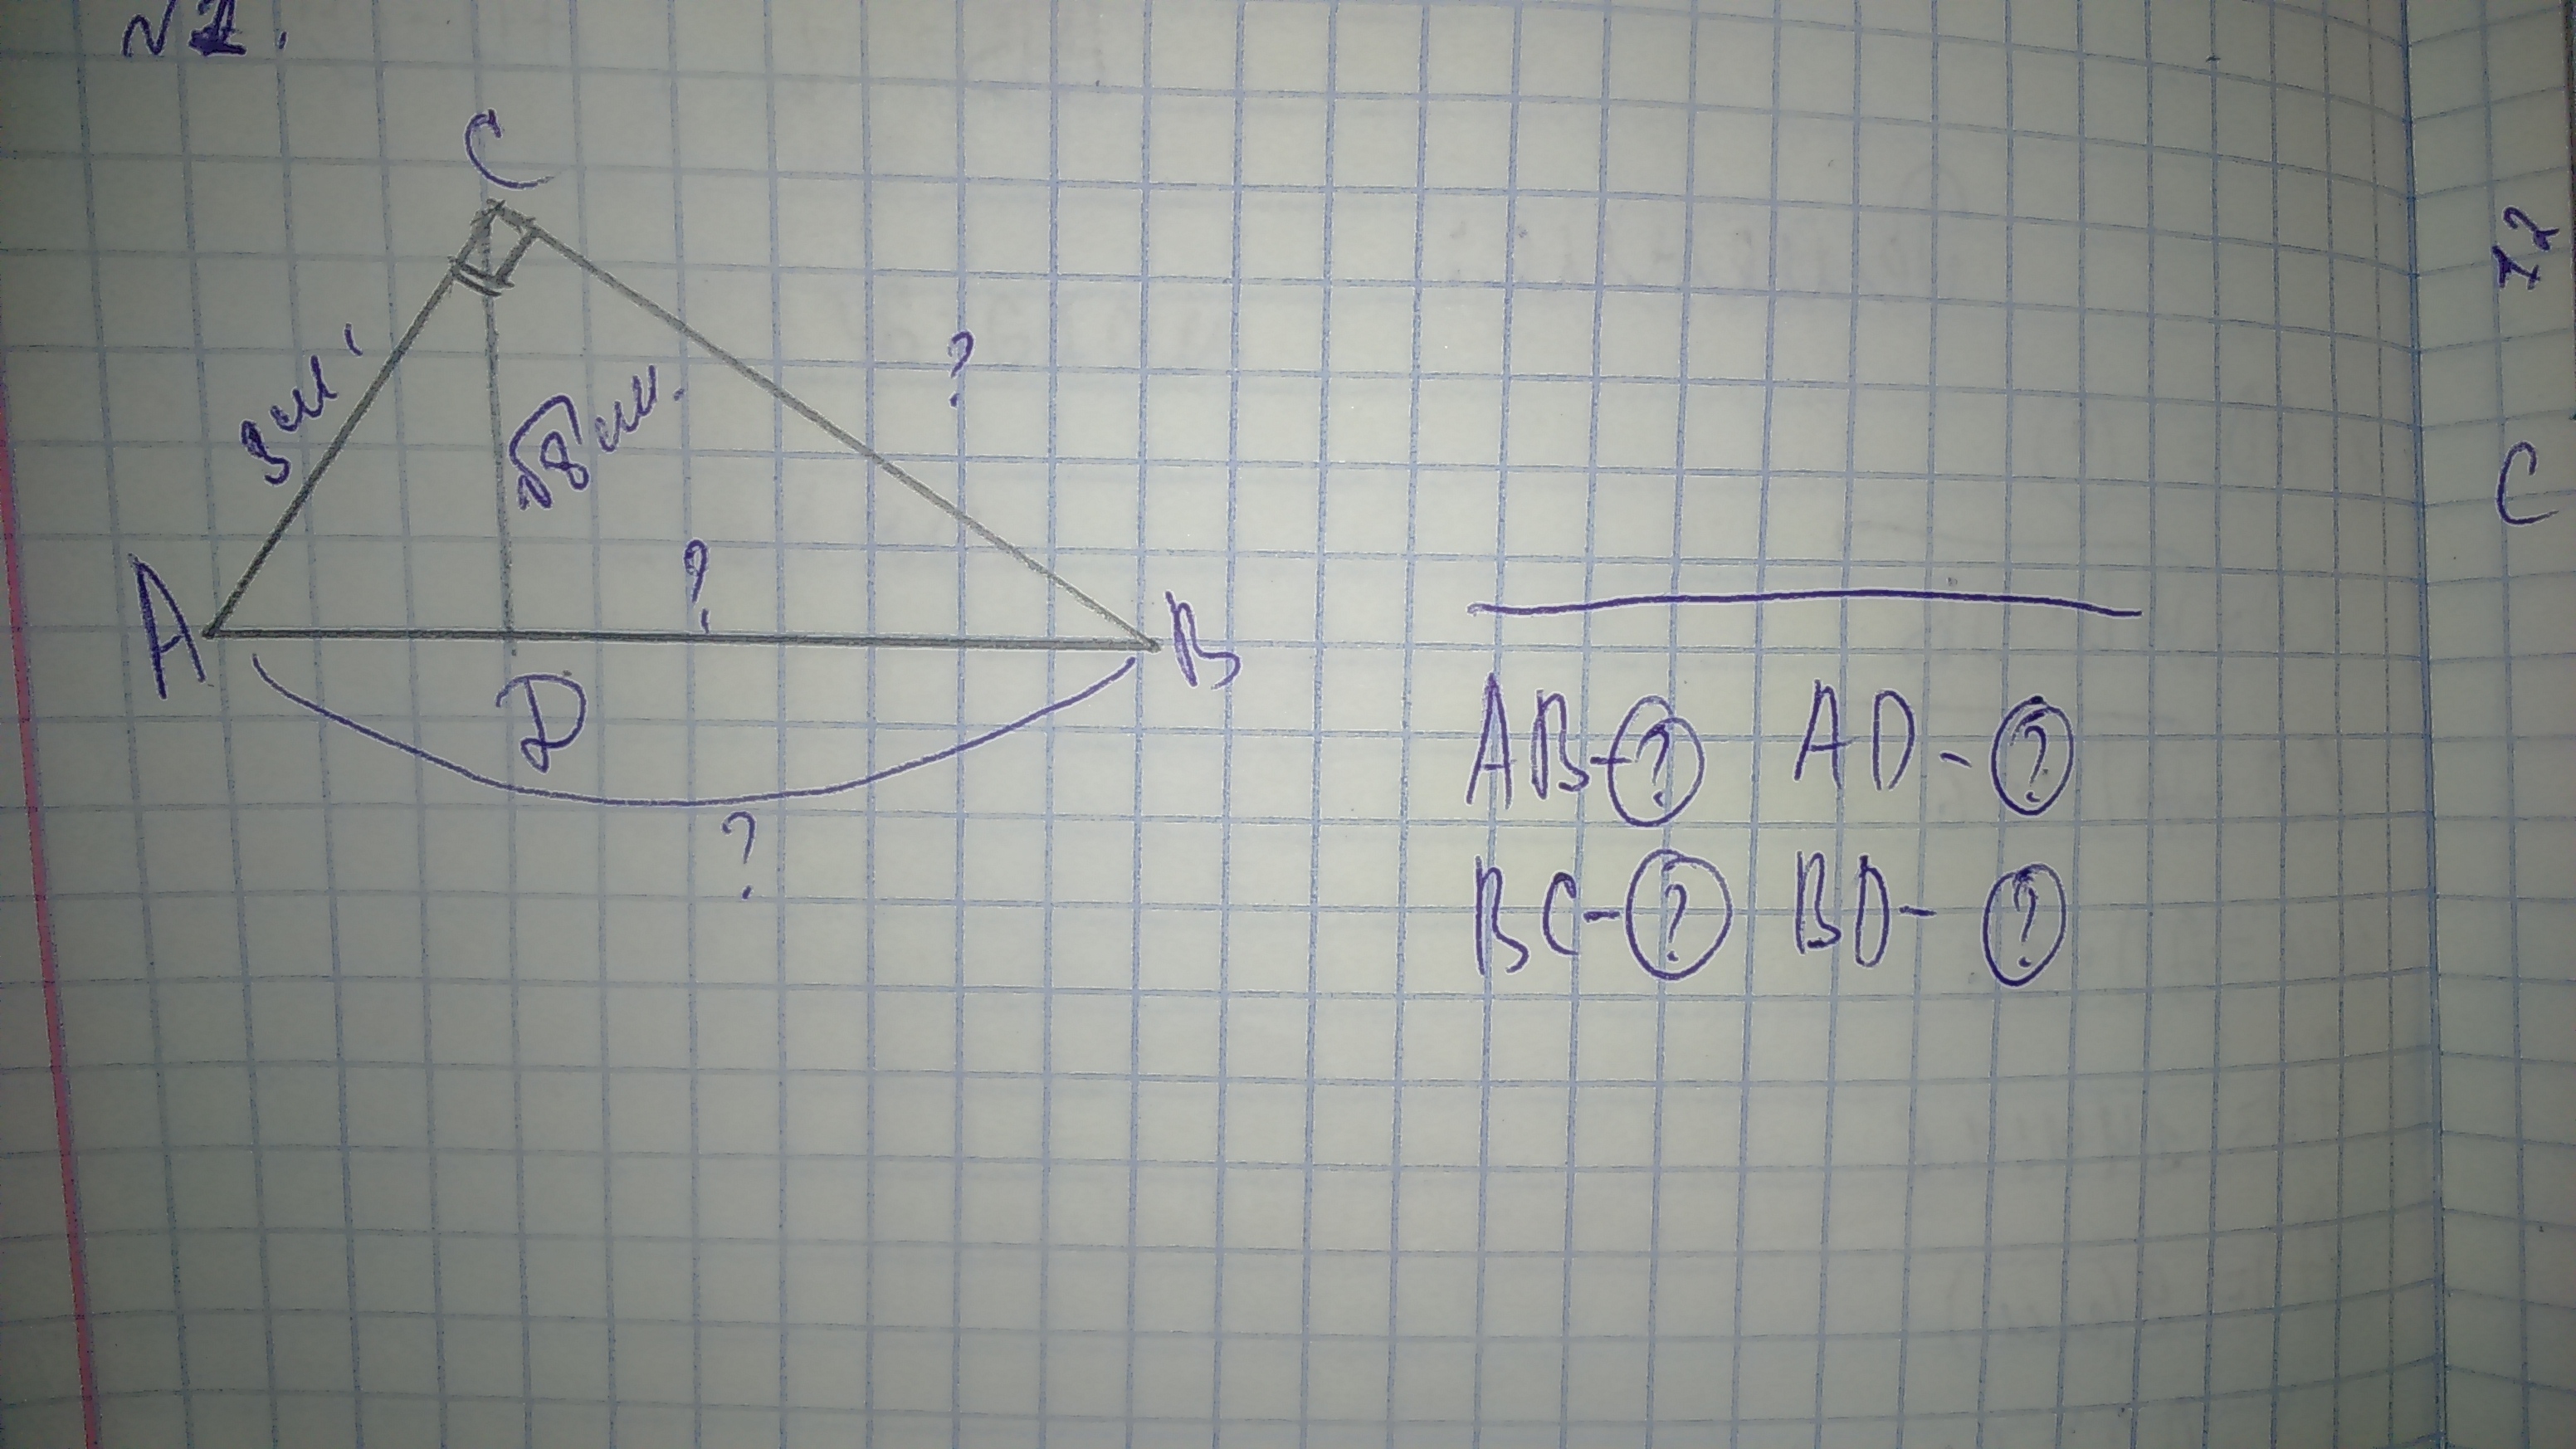 №1.
C
3 см.
√8 см.
?
?
A
B
D
?
AB - ? AD - ?
BC - ? BD - ?
12
C